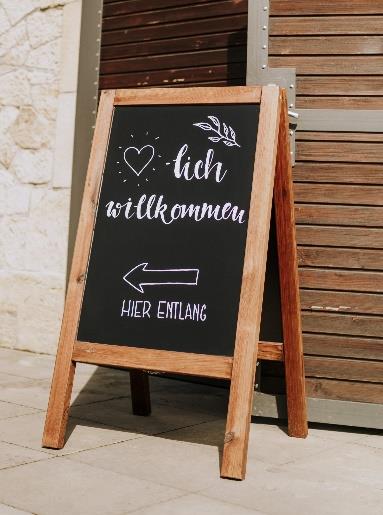 -lich
willkommen
HIER ENTLANG